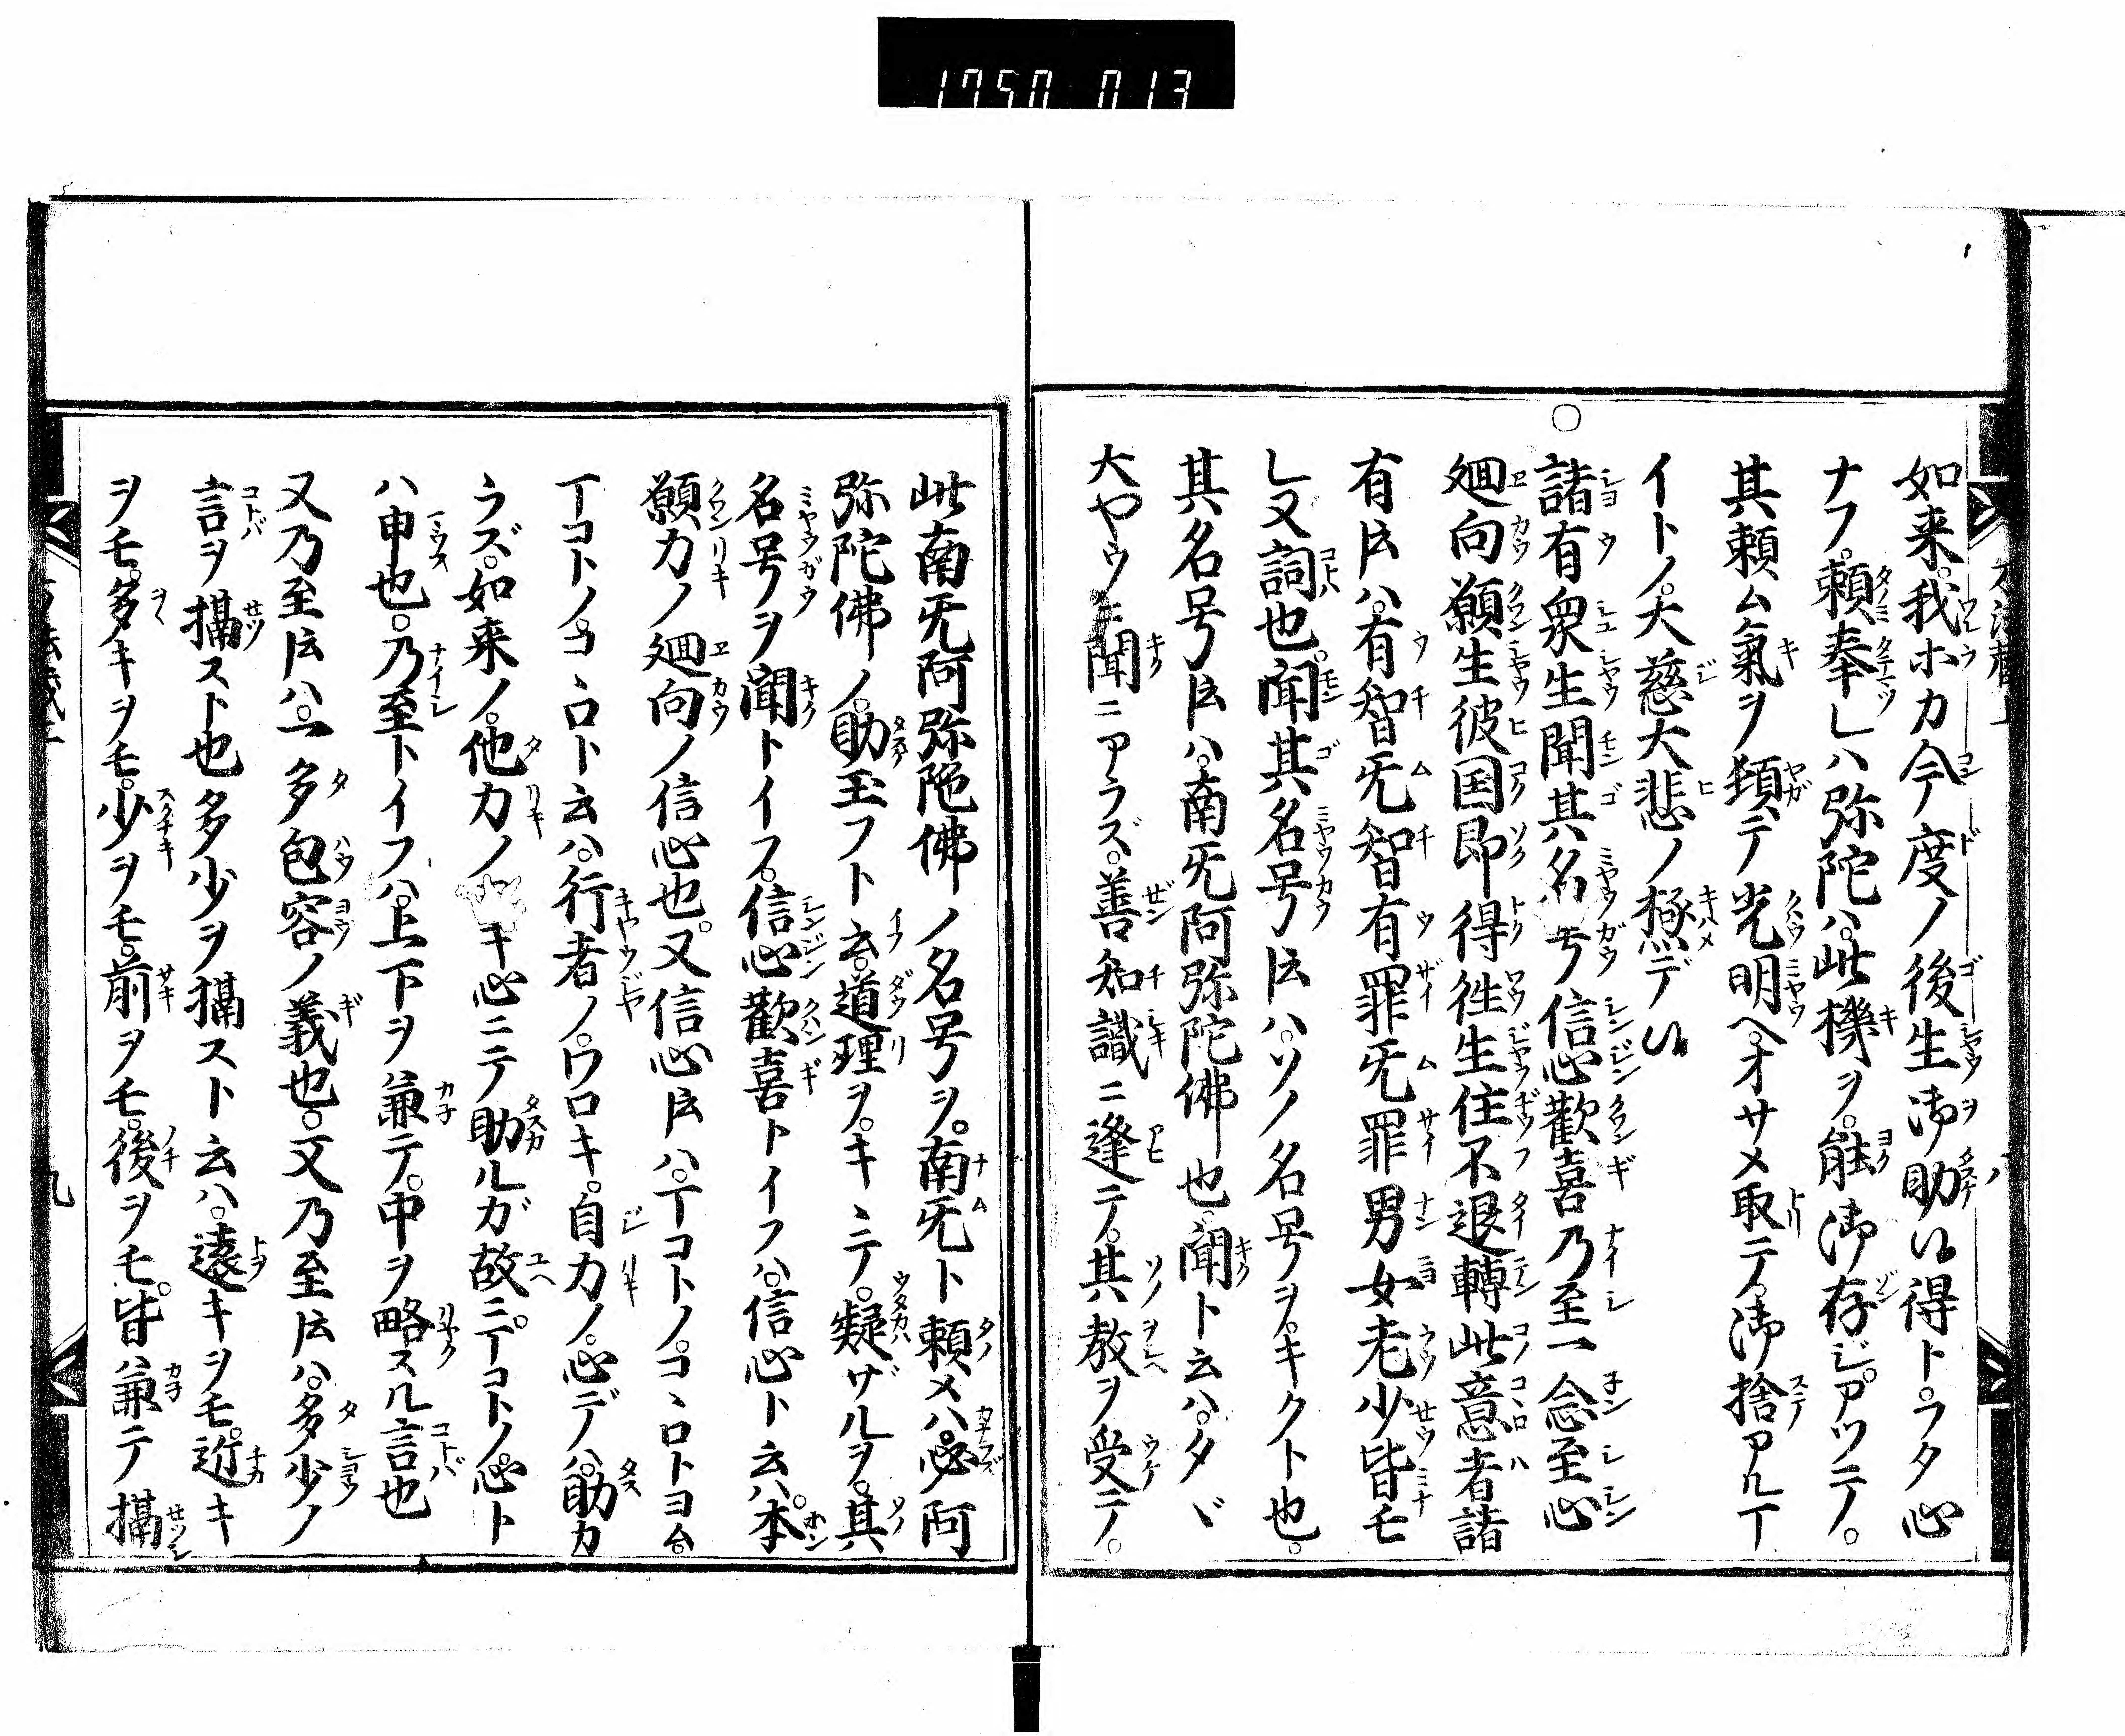 如来。我ホカ今度ノ後生御助ケ得トラタ心
ナフ。頼奉レハ弥陀ハ。此機ヲ。能御存ジ。アツテノ。
其頼ム氣ヲ頬テ光明ヘ。オサメ取テ。御捨アルヿ
イトノ。大慈大悲ノ極デ
○諸有衆生聞其名号信心歡喜乃至一念至心
廻向願生彼国即得徃生住不退轉此意者諸
有𪜈ハ。有智旡智有罪旡罪男女老少皆モ
レ又詞也。聞其名号𪜈ハ。ソノ名号ヲ。キクト也。
其名号𪜈ハ。南旡阿弥陀佛也。聞ト云ハ。タヾ
大ヤウニ聞ニアラズ。善知識ニ逢テ。其教ヲ受テ。
此南旡阿弥陀佛ノ名号ヲ。南旡ト頼メハ。必阿
弥陀佛ノ。助玉フト云。道理ヲ。キヽテ。疑ザルヲ。其
名号ヲ聞トイフ。信心歡喜トイフハ。信心ト云ハ。本
願力ノ廻向ノ信心也。又信心𪜈ハ。ヿコトノ。コヽロトヨム。
ヿコトノコヽロト云ハ。行者ノ。ワロキ。自力ノ。心デハ。助カ
ラズ。如来ノ。他力ノキ心ニテ助ルガ故ニ。ヿコトノ。心ト
ハ申也。乃至トイフハ。上下ヲ兼テ。中ヲ略スル言也
又乃至𪜈ハ。一多包容ノ義也。又乃至𪜈ハ。多少ノ
言ヲ攝スト也多少ヲ攝スト云ハ。遠キヲモ。近キ
ヲモ。多キヲモ。少ヲモ。前ヲモ。後ヲモ。皆兼テ攝
九
1750 013